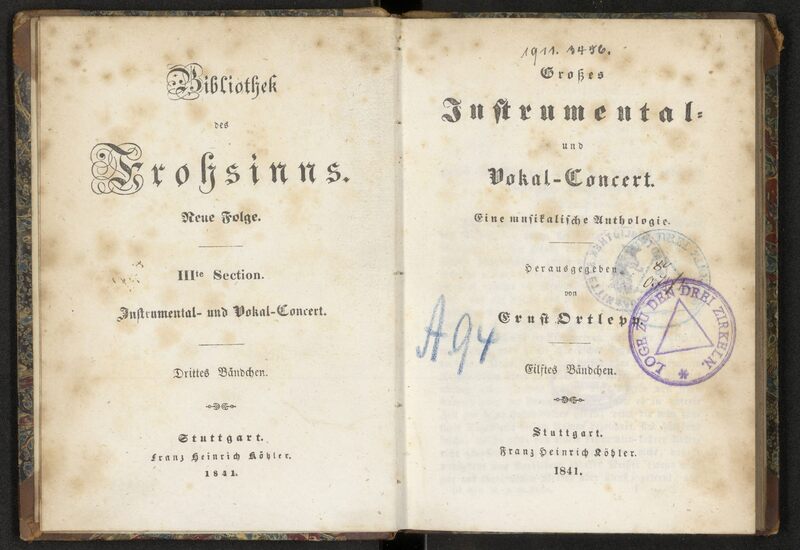 Bibliothek
des
Frohsinns.
Neue Folge.
IIIte Section.
Instrumental- und Vokal-Concert.
Drittes Bändchen.
Stuttgart.
Franz Heinrich Köhler.
1841.
1911. 3456.
Großes
Instrumental-
und
Vokal-Concert.
Eine musikalische Anthologie.
Herausgegeben
von
Ernst Ortlepp.
Eilftes Bändchen.
Stuttgart.
Franz Heinrich Köhler.
1841.
A94
LOGE ZU DEN DREI ZIRKELN.